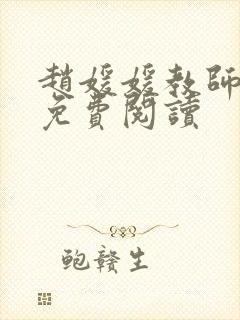 趙媛媛教師
免費閱讀
鲍赣生